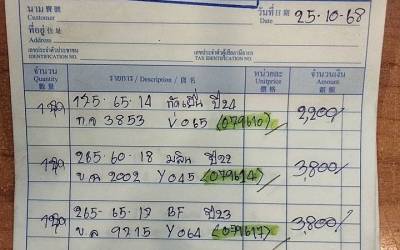 นาม 寶號
Name
วันที่ 日期 25-10-68
Date
ที่อยู่ 住址
Address
เลขประจำตัวประชาชน
IDENTIFICATION NO.
เลขประจำตัวผู้เสียภาษีอากร
TAX IDENTIFICATION NO.
จำนวน
Quantity
數量
รายการ / Description / 貨名
หน่วยละ
Unitprice
價格
จำนวนเงิน
Amount
銀額
195-65-14 ปี24 2,200
3853 V065 (079610)
265-60-18 มลิน ปี22 3,800
2002 Y045 (079614)
265-65-17 BF ปี23 3,800
9215 Y064 (079617)